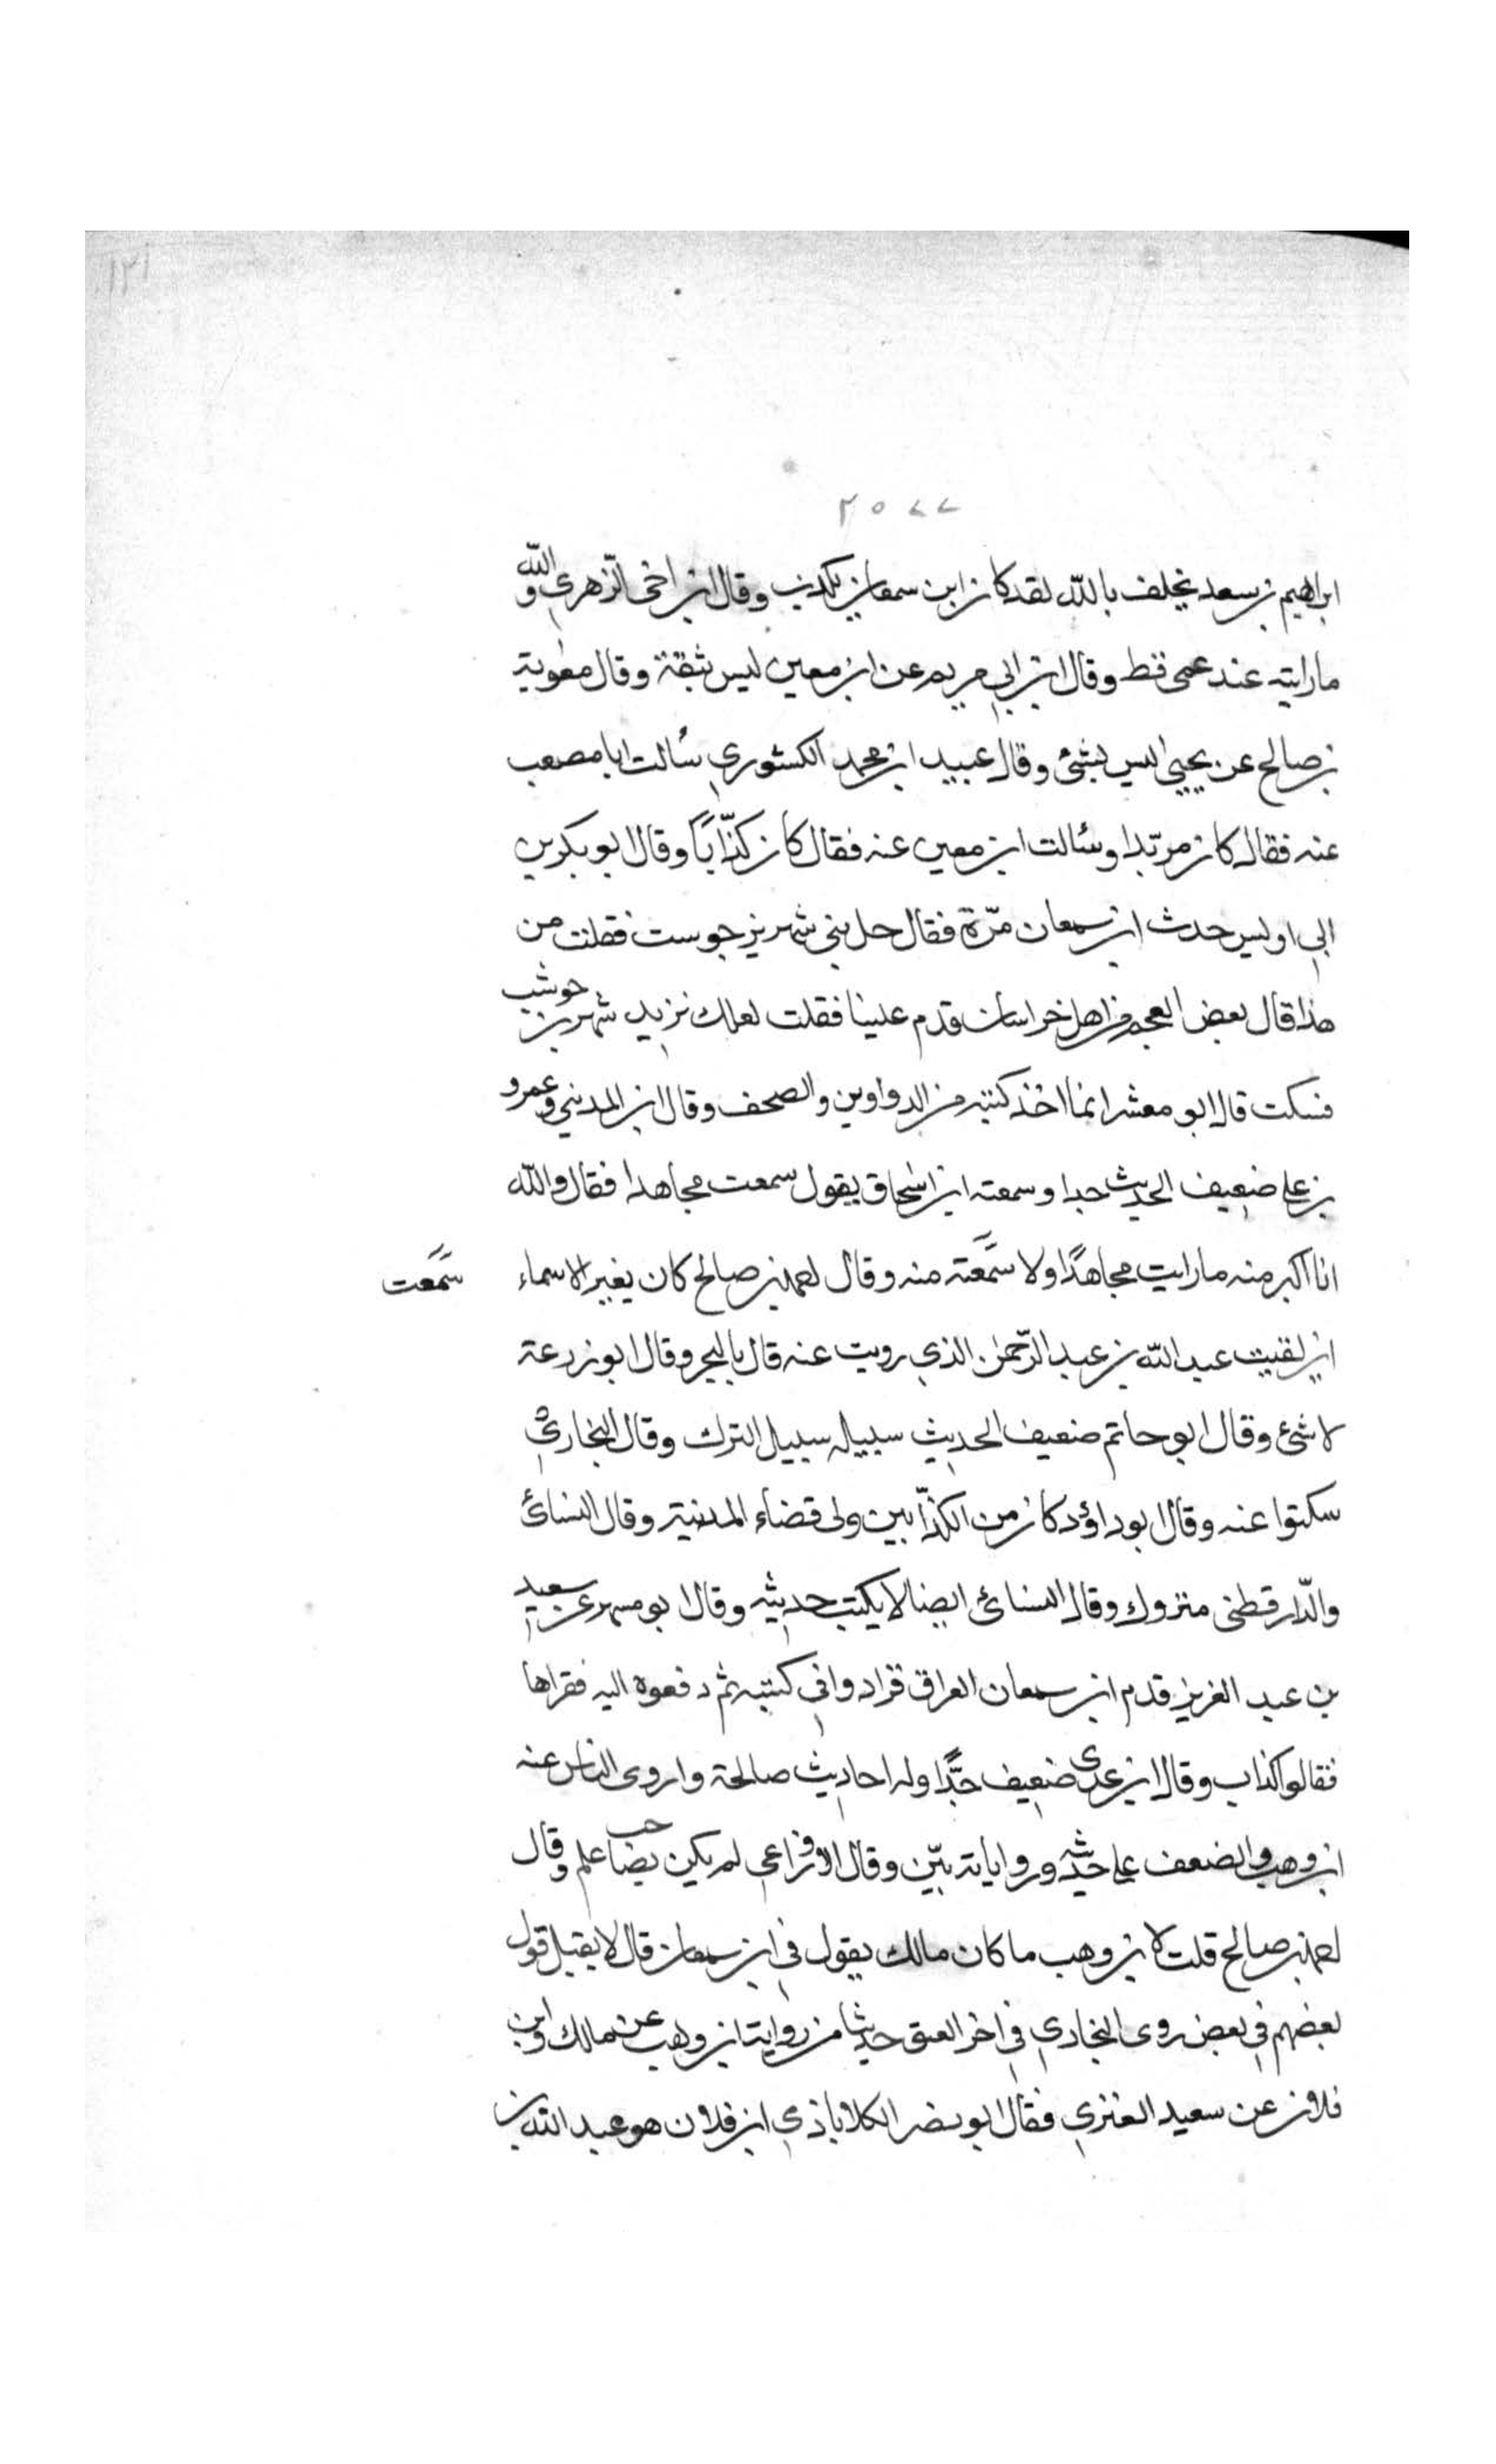 ١٢١
٢٥٧٧
ابراهيم بن سعد يحلف بالله لقد كان ابن سمعان يكذب وقال ابن اخى الزهري والله
ما رايته عند عمى قط وقال ابن ابي مريم عن ابن معين ليس بثقة وقال معوية
بن صالح عن يحيى ليس بشئ وقال عبيد ابن محمد الكشوري سألت ابا مصعب
عنه فقال كان مرتدا وسألت ابن معين عنه فقال كان كذّاباً وقال ابو بكر بن
ابي اويس حدث ابن سمعان مرّة فقال حدثنى شهر بن جوست فقلت من
هذا قال بعض العجم من اهل خراسان قدم علينا فقلت لعلك تريد شهر بن حوشب
فسكت قال ابو معشر انما اخذ كتبه من الدواوين والصحف وقال ابن المديني وعمرو
بن على ضعيف الحديث جدا وسمعته ابن اسحاق يقول سمعت مجاهدا فقال والله
انا اكبر منه ما رايت مجاهدًا ولا سمعته منه وقال احمد بن صالح كان يغير الاسماء
سمعت
اين لقيت عبد الله بن عبد الرّحمن الذي رويت عنه قال بالبحر وقال ابو زرعة
لا شئ وقال ابو حاتم ضعيف الحديث سبيله سبيل الترك وقال البخاري
سكتوا عنه وقال ابو داؤد كان من الكذّابين ولى قضاء المدينة وقال النسائ
والدّارقطنى متروك وقال النسائ ايضا لا يكتب حديثه وقال ابو مسهر عن سعيد
بن عبد العزيز قدم ابن سمعان العراق فزادوا في كتبه ثم دفعوه اليه فقراها
فقالوا كذاب وقال ابن عدى ضعيف جدًّا وله احاديث صالحة واروى الناس عنه
ابن وهب والضعف على حديثه ورواياته بيّن وقال الاوزاعي لم يكن بصاحب علم وقال
احمد بن صالح قلت لابن وهب ما كان مالك يقول في ابن سمعان قال لا يقبل قول
بعضهم في بعض روى البخاري في اخر العتق حديثا من روايت ابن وهب عن مالك وابن
فلان عن سعيد المقبري فقال ابو نصر الكلاباذي ابن فلان هو عبد الله بن